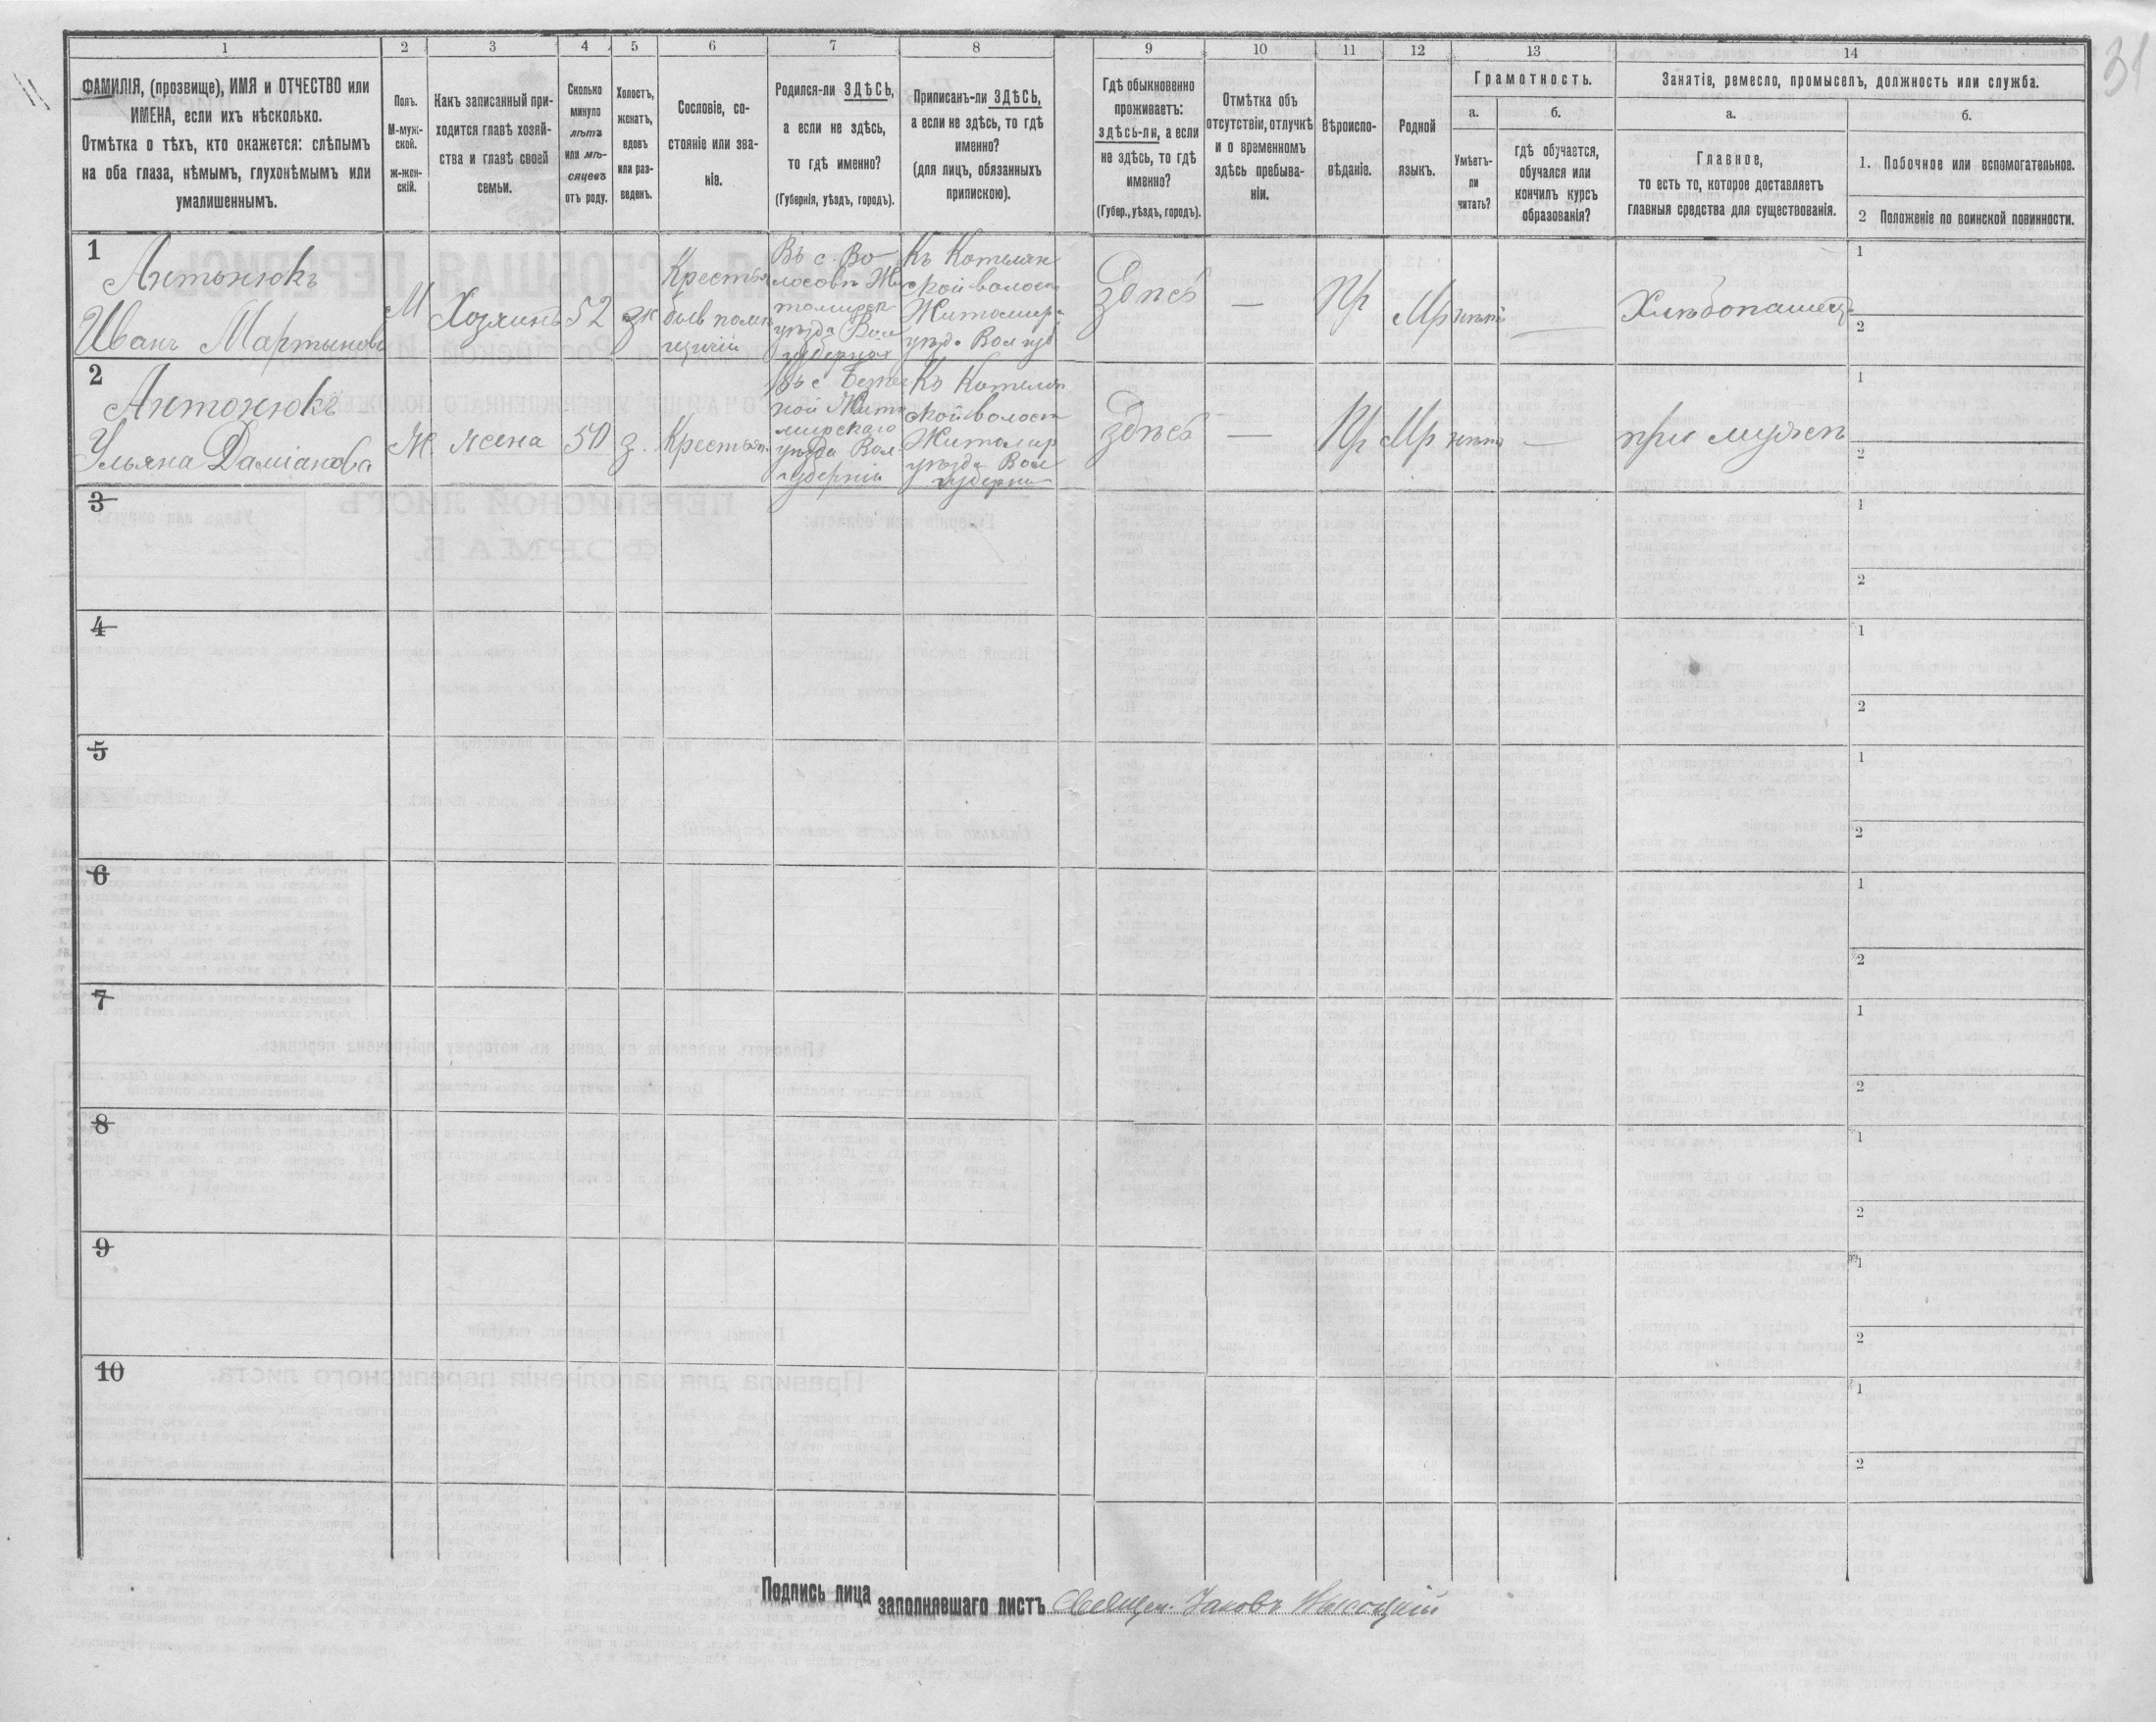 31
1 2 3 4 5 6 7 8 9 10 11 12 13 14
ФАМИЛІЯ, (прозвище), ИМЯ и ОТЧЕСТВО или
ИМЕНА, если ихъ нѣсколько.
Отмѣтка о тѣхъ, кто окажется: слѣпымъ
на оба глаза, нѣмымъ, глухонѣмымъ или
умалишеннымъ.
Полъ.
М-муж-
ской.
ж-жен-
скій.
Какъ записанный при-
ходится главѣ хозяй-
ства и главѣ своей
семьи.
Сколько
минуло
лѣтъ
или мѣ-
сяцевъ
отъ роду.
Холостъ,
женатъ,
вдовъ
или раз-
веденъ.
Сословіе, со-
стояніе или зва-
ніе.
Родился-ли ЗДѢСЬ,
а если не здѣсь,
то гдѣ именно?
(Губернія, уѣздъ, городъ).
Приписанъ-ли ЗДѢСЬ,
а если не здѣсь, то гдѣ
именно?
(для лицъ, обязанныхъ
припискою).
Гдѣ обыкновенно
проживаетъ:
здѣсь-ли, а если
не здѣсь, то гдѣ
именно?
(Губер., уѣздъ, городъ).
Отмѣтка объ
отсутствіи, отлучкѣ
и о временномъ
здѣсь пребыва-
ніи.
Вѣроиспо-
вѣданіе.
Родной
языкъ.
Грамотность.
а.
Умѣетъ-
ли
читать?
б.
гдѣ обучается,
обучался или
кончилъ курсъ
образованія?
Занятіе, ремесло, промыселъ, должность или служба.
а.
Главное,
то есть то, которое доставляетъ
главныя средства для существованія.
б.
1. Побочное или вспомогательное.
2 Положеніе по воинской повинности.
1
Антонюкъ
Иванъ Мартыновъ
М
Хозяинъ
52
ж
Крестья
бывъ помѣ
Въ с. Во
лосовѣ Жи
томирск
уѣзда Вол
губерніи
Къ Котелян
ской волост
Житомир
уѣзд. Вол губ
Здѣсь
—
Пр
Мр
нѣтъ
—
Хлѣбопашецъ
1
2
2
Антонюкъ
Ульяна Даміанова
Ж
жена
50
з.
Крестьян.
ной Жито
мирскаго
уѣзда Вол.
губерніи
Къ Котелян
ской волост
Житомир
уѣзда Вол
губерни
Здѣсь
—
Пр
Мр
нѣтъ
—
при мужѣ
1
2
3
1
2
4
1
2
5
1
2
6
1
2
7
1
2
8
1
2
9
1
2
10
1
2
Подпись лица заполнявшаго листъ Священ. Іаковъ Высоцкій